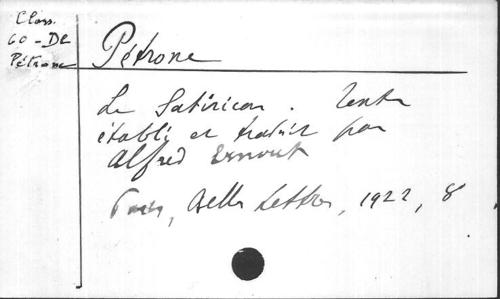 Class.
60 - De
Pétrone
Pétrone
Le Satiricon. Texte
établi et traduit par
Alfred Ernout
Paris, Belles Lettres, 1922, 8